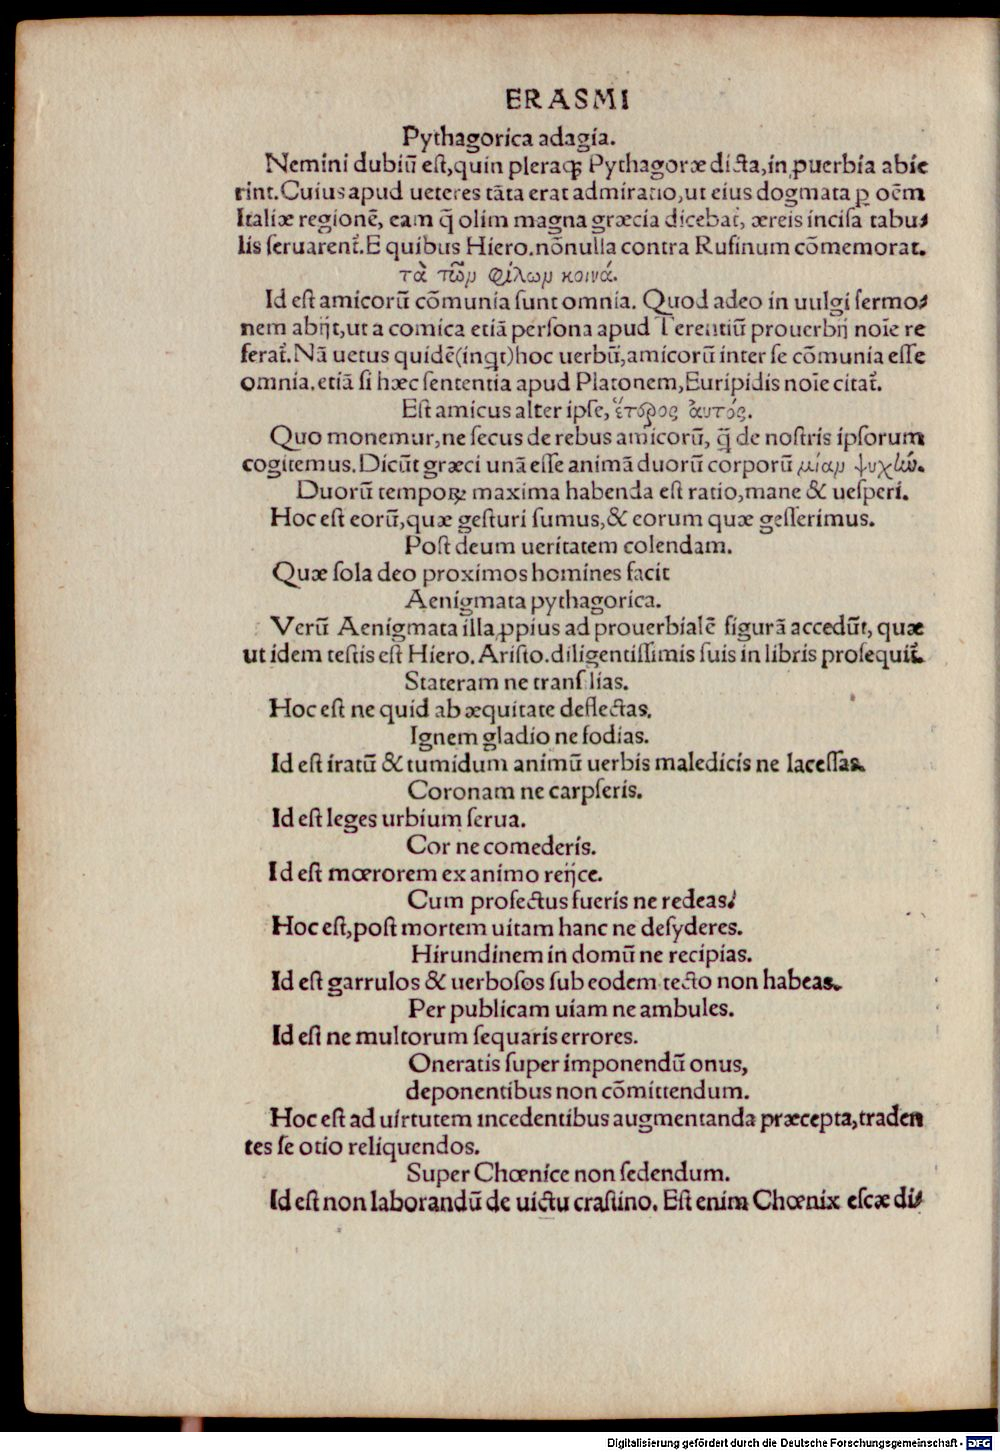 ERASMI
Pythagorica adagia.
Nemini dubiũ est,quin pleraqꝫ Pythagoræ dicta,in ꝓuerbia abie
rint.Cuius apud ueteres tãta erat admiratio,ut eius dogmata ꝑ oẽm
Italiæ regionẽ, eam q̃ olim magna græcia dicebat᷑, æreis incisa tabu⸗
lis seruarent᷑.E quibus Hiero.nõnulla contra Rufinum cõmemorat.
τὰ τῶν φίλων κοινά.
Id est amicorũ cõmunia sunt omnia. Quod adeo in uulgi sermo⸗
nem abijt,ut a comica etiã persona apud Terentiũ prouerbij noĩe re
ferat᷑.Nã uetus quidẽ(inqt)hoc uerbũ,amicorũ inter se cõmunia esse
omnia.etiã si hæc sententia apud Platonem,Euripidis noĩe citat᷑.
Est amicus alter ipse, ἕτερος ἀυτός.
Quo monemur,ne secus de rebus amicorũ, q̃ de nostris ipsorum
cogitemus.Dicũt græci unã esse animã duorũ corporũ μίαν ψυχὴν.
Duorũ temporꝝ maxima habenda est ratio,mane & uesperi.
Hoc est eorũ,quæ gesturi sumus,& eorum quæ gesserimus.
Post deum ueritatem colendam.
Quæ sola deo proximos homines facit
Aenigmata pythagorica.
Verũ Aenigmata illa ꝓpius ad prouerbialẽ figurã accedũt, quæ
ut idem testis est Hiero.Aristo.diligentissimis suis in libris prosequit᷑.
Stateram ne transilias.
Hoc est ne quid ab æquitate deflectas.
Ignem gladio ne fodias.
Id est iratũ & tumidum animũ uerbis maledicis ne lacessas.
Coronam ne carpseris.
Id est leges urbium serua.
Cor ne comederis.
Id est mœrorem ex animo reijce.
Cum profectus fueris ne redeas.
Hoc est,post mortem uitam hanc ne desyderes.
Hirundinem in domũ ne recipias.
Id est garrulos & uerbosos sub eodem tecto non habeas.
Per publicam uiam ne ambules.
Id est ne multorum sequaris errores.
Oneratis super imponendũ onus,
deponentibus non cõmittendum.
Hoc est ad uirtutem incedentibus augmentanda præcepta,traden
tes se otio reliquendos.
Super Chœnice non sedendum.
Id est non laborandũ de uictu crastino. Est enim Chœnix escæ di⸗
Digitalisierung gefördert durch die Deutsche Forschungsgemeinschaft - DFG